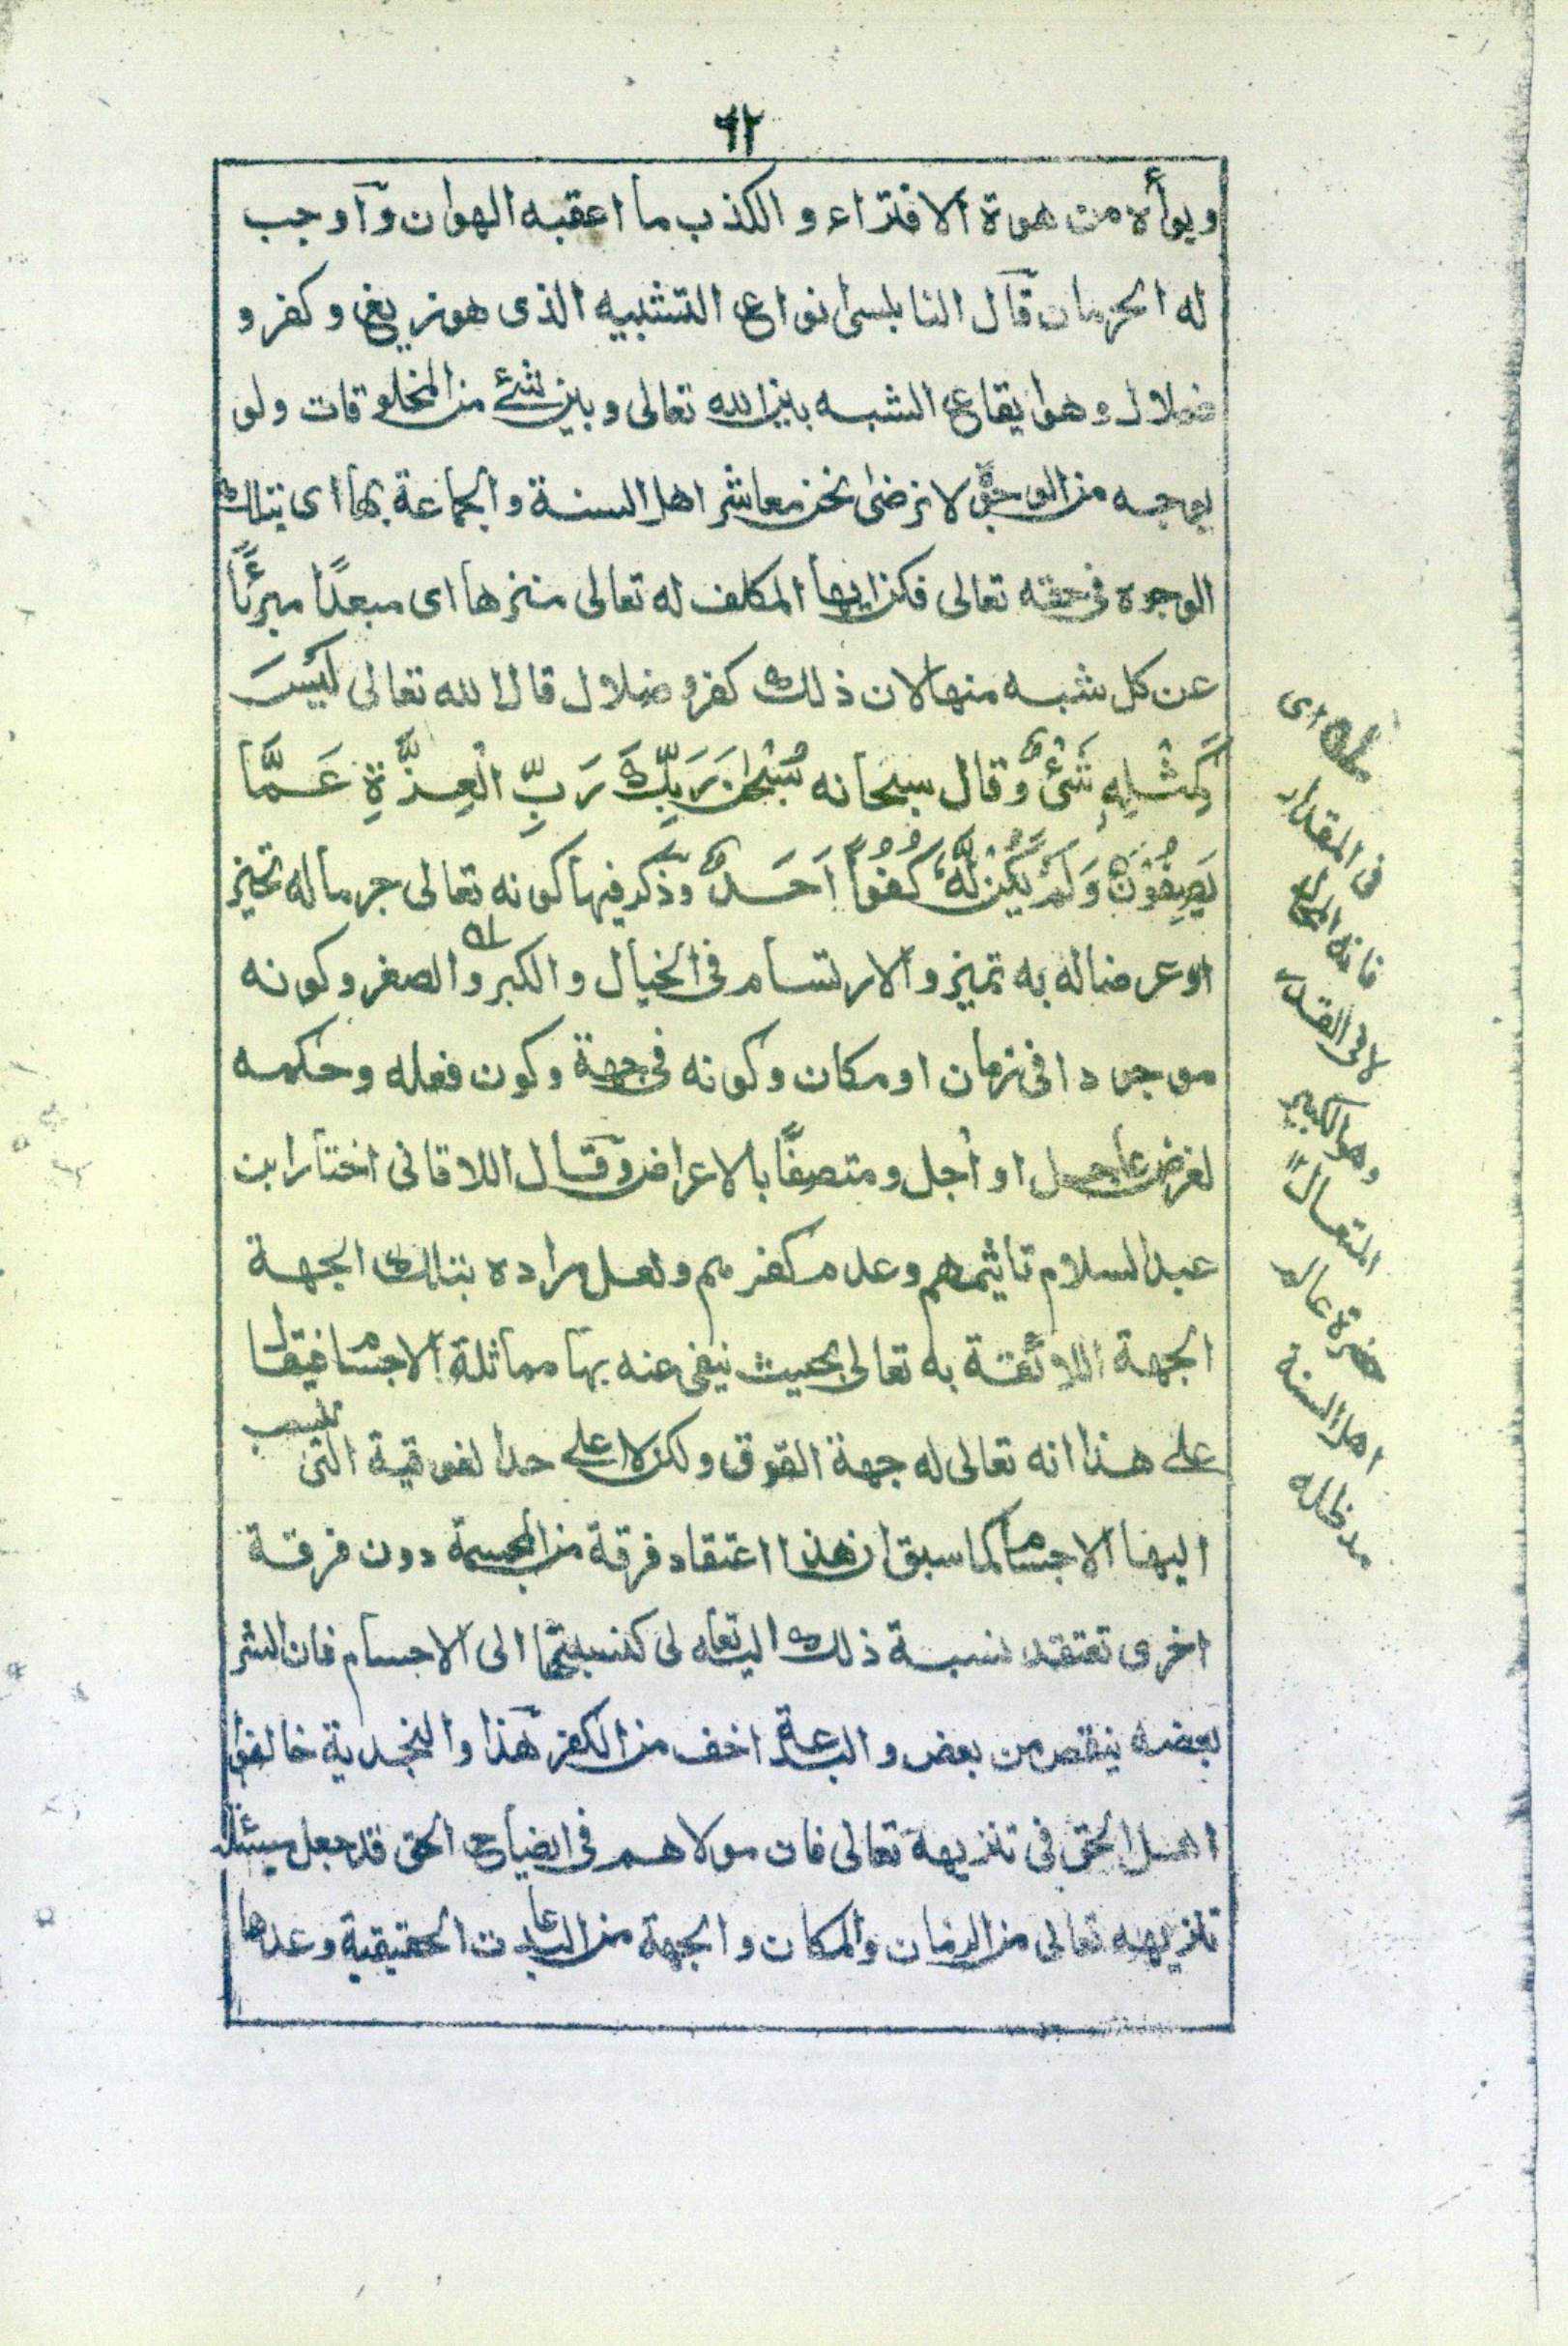 ٦٢
ويوأه من هوة الافتراء والكذب ما اعقبه الهوان وآوجب
له الحرمان قآل النابلسى انواع التشبيه الذى هو زيغ وكفر و
ضلال وهو ايقاع الشبه بين الله تعالى وبين شئ من المخلوقات ولو
بوجه من الوجوه لا نرضى نحن معاشر اهل السنة والجماعة بها اى بتلك
الوجوه فى حقه تعالى فكن ايها المكلف له تعالى منزها اى مبعدًا مبرئًا
عن كل شبه منها لان ذلك كفر وضلال قال الله تعالى لَيْسَ
كَمِثْلِهٖ شَىْءٌ وقال سبحانه سُبْحٰنَ رَبِّكَ رَبِّ الْعِزَّةِ عَمَّا
يَصِفُوْنَ وَلَمْ يَكُنْ لَّهٗ كُفُوًا اَحَدٌ وذكر فيها كونه تعالى جرما له تحيز
او عرضا له به تميز والارتسام فى الخيال والكبر والصغر وكونه
موجودا فى زمان او مكان وكونه فى جهة وكون فعله وحكمه
لغرض عاجل او آجل ومتصفًا بالاعراض وقال اللاقانى اختار ابن
عبد السلام تاثيمهم وعدم كفرهم ولعل مراده بتلك الجهة
الجهة اللائقة به تعالى بحيث ينفى عنه بها مماثلة الاجسام فيقال
على هذا انه تعالى له جهة الفوق ولكن لا على حد الفوقية التى تنسب
اليها الاجسام كما سبق ان هذا اعتقاد فرقة من المجسمة دون فرقة
اخرى تعتقد نسبة ذلك اليه تعالى كنسبتها الى الاجسام فان الشر
بعضه ينقص من بعض والبدعة اخف من الكفر هٓذا والنجدية خالفوا
اهل الحق فى تنزيهه تعالى فان مولاهم فى ايضاح الحق قد جعل مسئلة
تنزيهه تعالى من الزمان والمكان والجهة من البدعات الحقيقية وعدها
له اى
فى المقدار
فانه المحال
لا فى القدر
وهو الكبير
المتعال
حضرة عالم
اهل السنة
مد ظله